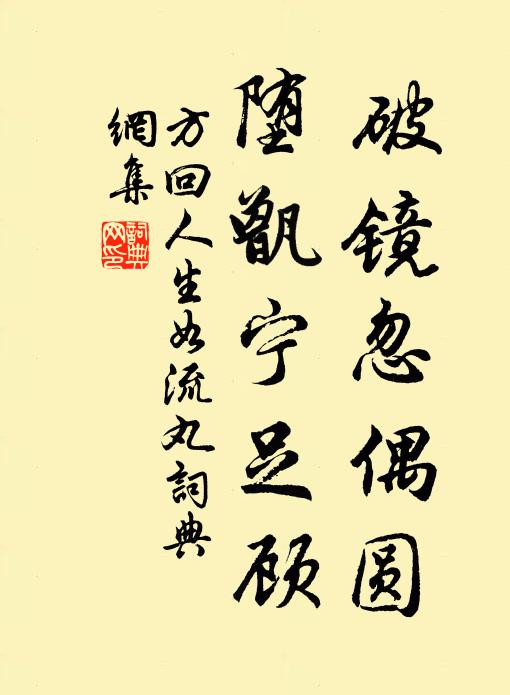 破镜忽偶圆
堕甑宁足顾
方回人生如流丸詞典
網集
詞典
网印